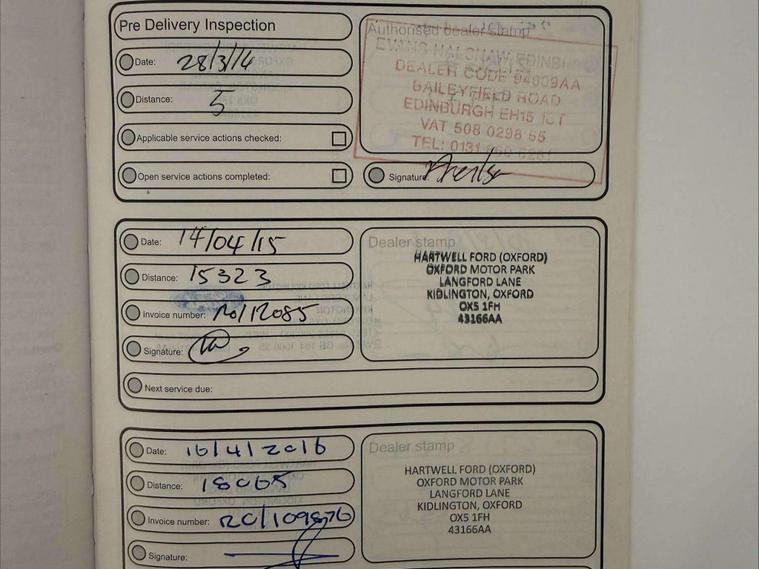 Pre Delivery Inspection
Date: 28/3/14
Distance: 5
Applicable service actions checked:
Open service actions completed:
Authorised dealer stamp
EVANS HALSHAW EDINBURGH
DEALER CODE 94609AA
BAILEYFIELD ROAD
EDINBURGH EH15
VAT 508 0298 55
TEL: 0131
Signature:
Date: 14/04/15
Distance: 15323
Invoice number:
Signature:
Next service due:
Dealer stamp
HARTWELL FORD (OXFORD)
OXFORD MOTOR PARK
LANGFORD LANE
KIDLINGTON, OXFORD
OX5 1FH
43166AA
Date: 16/4/2016
Distance: 18065
Invoice number: RC/109876
Signature:
Dealer stamp
HARTWELL FORD (OXFORD)
OXFORD MOTOR PARK
LANGFORD LANE
KIDLINGTON, OXFORD
OX5 1FH
43166AA